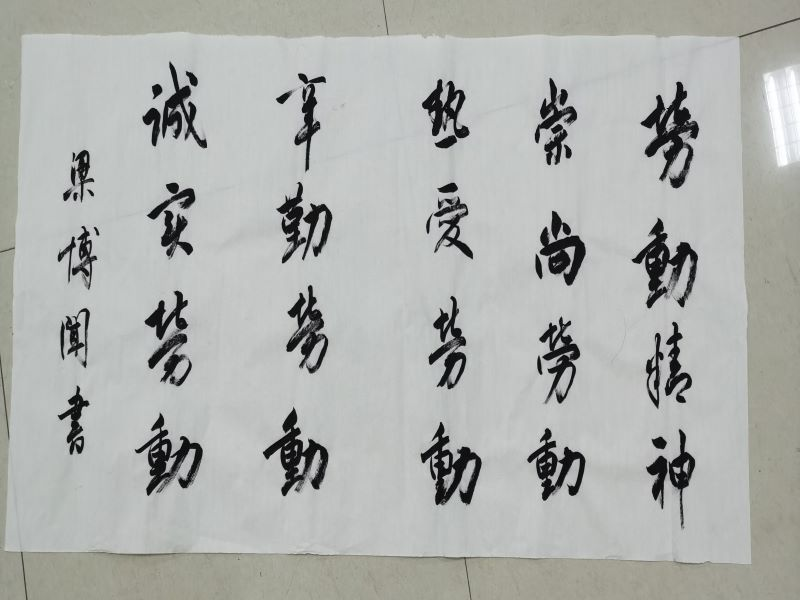 劳動精神
崇尚劳動
热爱劳動
辛勤劳動
诚实劳動
梁博闻書